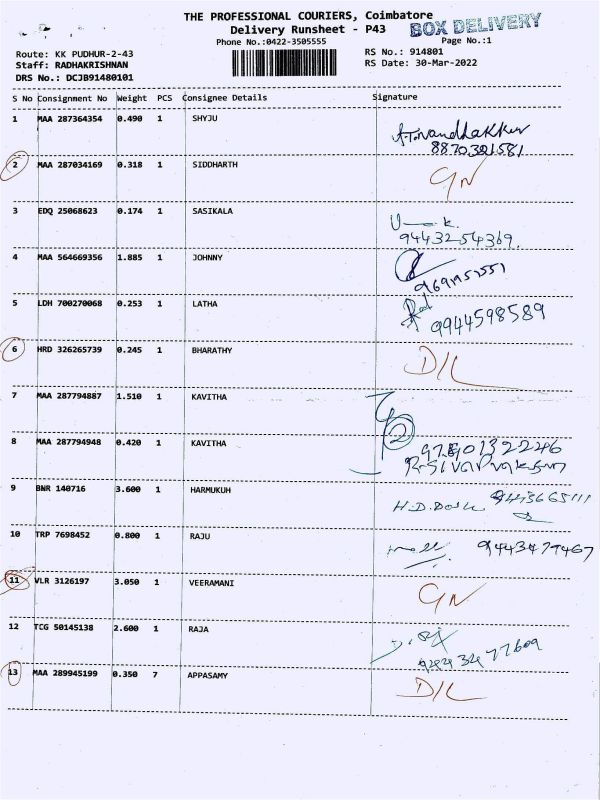 THE PROFESSIONAL COURIERS, Coimbatore
Delivery Runsheet - P43
BOX DELIVERY
Phone No.:0422-3505555
Page No.:1
Route: KK PUDHUR-2-43
RS No.: 914801
Staff: RADHAKRISHNAN
RS Date: 30-Mar-2022
DRS No.: DCJB91480101
S No Consignment No Weight PCS Consignee Details Signature
1 MAA 287364354 0.490 1 SHYJU
8870321581
2 MAA 287034169 0.318 1 SIDDHARTH GN
3 EDQ 25068623 0.174 1 SASIKALA
9443254369.
4 MAA 564669356 1.885 1 JOHNNY
5 LDH 700270068 0.253 1 LATHA 9944598589
6 HRD 326265739 0.245 1 BHARATHY D/L
7 MAA 287794887 1.510 1 KAVITHA
2
8 MAA 287794948 0.420 1 KAVITHA
9 BNR 140716 3.600 1 HARMUKUH
10 TRP 7698452 0.800 1 RAJU
11 VLR 3126197 3.050 1 VEERAMANI GN
12 TCG 50145138 2.600 1 RAJA
13 MAA 289945199 0.350 7 APPASAMY D/L